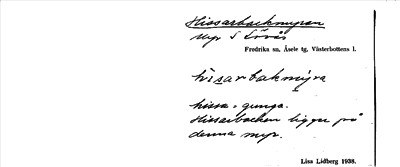 Hissarbackmyran
Myr S Lövås
Fredrika sn, Åsele tg, Västerbottens l.
hisarbakmýra
hissa = gunga.
Hissarbacken ligger på
denna myr.
Lisa Lidberg 1938.